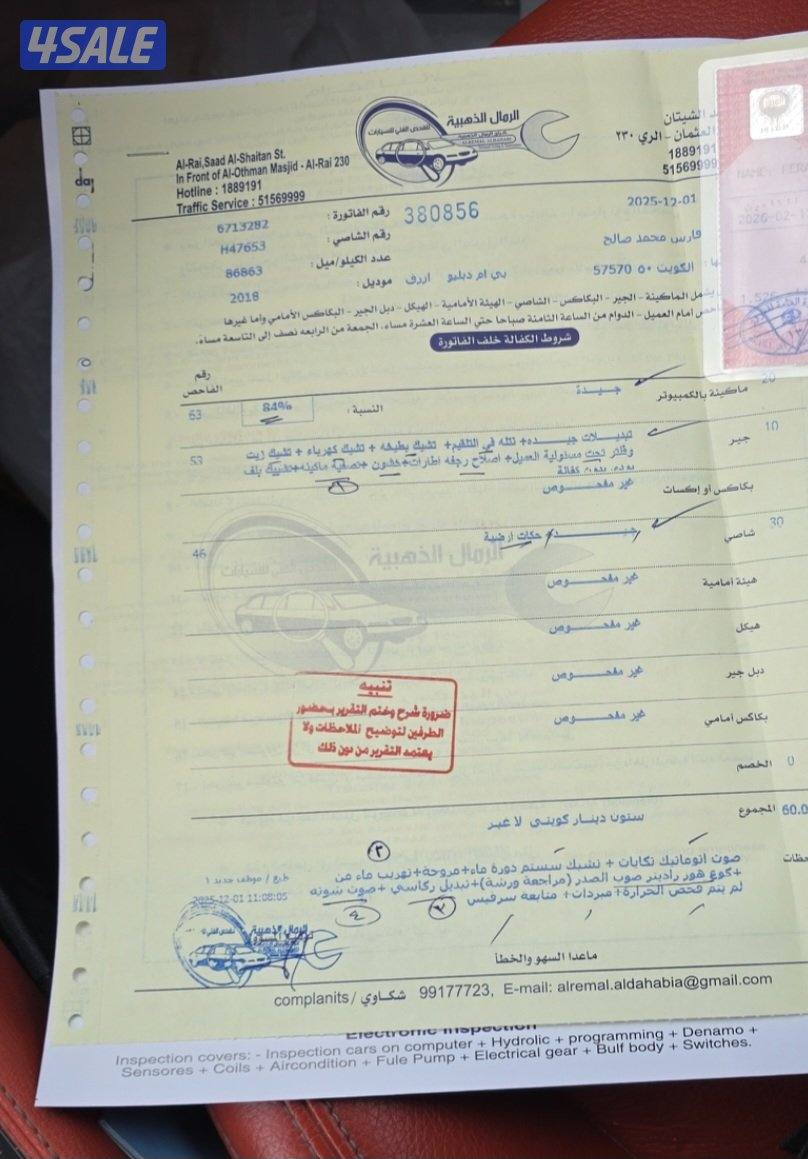 4SALE
الرمال الذهبية
للفحص الفني للسيارات
Al-Rai,Saad Al-Shaitan St.
In Front of Al-Othman Masjid - Al-Rai 230
Hotline : 1889191
Traffic Service : 51569999
الشيتان
العثمان - الري ٢٣٠
1889191
51569999
رقم الفاتورة : 6713282
380856
2025-12-01
رقم الشاصي : H47653
فارس محمد صالح
عدد الكيلو/ميل : 86863
الكويت ٥٠ 57570
موديل : 2018
بي ام دبليو ازرق
يشمل الماكينة - الجير - البكاكس - الشاصي - الهيئة الأمامية - الهيكل - دبل الجير - البكاكس الأمامي وأما غيرها
أمام العميل - الدوام من الساعة الثامنة صباحا حتي الساعة العشرة مساء. الجمعة من الرابعه نصف إلى التاسعة مساء.
شروط الكفالة خلف الفاتورة
رقم الفاحص
20 ماكينة بالكمبيوتر جيدة النسبة : 84% 53
10 جير تبديلات جيده+ نتله في التقيم+ تشيك بطيخه + تشيك كهرباء + تشيك زيت 53
وفلتر تحت مسئولية العميل+ اصلاح رجفه اطارات+ كشون +تصفية ماكينه+تشييك بلف
بودي بدون كفالة
بكاكس أو إكسات غير مفحوص
30 شاصي جيد حكات ارضية 46
هيئة أمامية غير مفحوص
هيكل غير مفحوص
دبل جير غير مفحوص
بكاكس أمامي غير مفحوص
تنبيه
ضرورة شرح وختم التقرير بحضور
الطرفين لتوضيح الملاحظات ولا
يعتمد التقرير من دون ذلك
0 الخصم
60.0 المجموع ستون دينار كويتي لا غير
صوت اتوماتيك تكايات + تشيك سستم دورة ماء+مروحة+تهريب ماء من
+كوع هوز راديتر صوب الصدر (مراجعة ورشة)+تبديل ركاسي+ صوت شونه
لم يتم فحص الحرارة+مبردات+ متابعة سرفيس
طبع / موظف جديد ١
2025-12-01 11:08:05
ماعدا السهو والخطأ
complanits / شكاوي 99177723, E-mail: alremal.aldahabia@gmail.com
Electronic Inspection
Inspection covers: - Inspection cars on computer + Hydrolic + programming + Denamo +
Sensores + Coils + Aircondition + Fule Pump + Electrical gear + Bulf body + Switches.